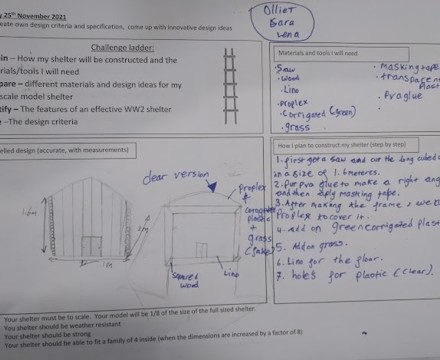 25th November 2021
create own design criteria and specification, come up with innovative design ideas
Ollie T
Sara
Lena
Challenge ladder:
in – How my shelter will be constructed and the
rials/tools I will need
pare – different materials and design ideas for my
scale model shelter
tify – The features of an effective WW2 shelter
– The design criteria
Materials and tools I will need
· Saw
· Wood
· Lino
· Proplex
· Corrigated (green)
· grass
· Masking tape
· Pva glue
elled design (accurate, with measurements)
clear version
Proplex
+
plastic
+
grass
(fake)
Squared
wood
Lino
1.6m
1m
2m
How I plan to construct my shelter (step by step)
1. first get a saw and cut the long cubed
in a size of 1.6 meteres.
2. Put pva glue to make a right ang
and then aply masking tape.
3. After making the frame,
Proplex to cover it.
4. add on green corrigated plas
5. Add on grass.
6. Lino for the floor.
7. holes for plastic (clear).
Your shelter must be to scale. Your model will be 1/8 of the size of the full sized shelter.
You shelter should be weather resistant
Your shelter should be strong
Your shelter should be able to fit a family of 4 inside (when the dimensions are increased by a factor of 8)